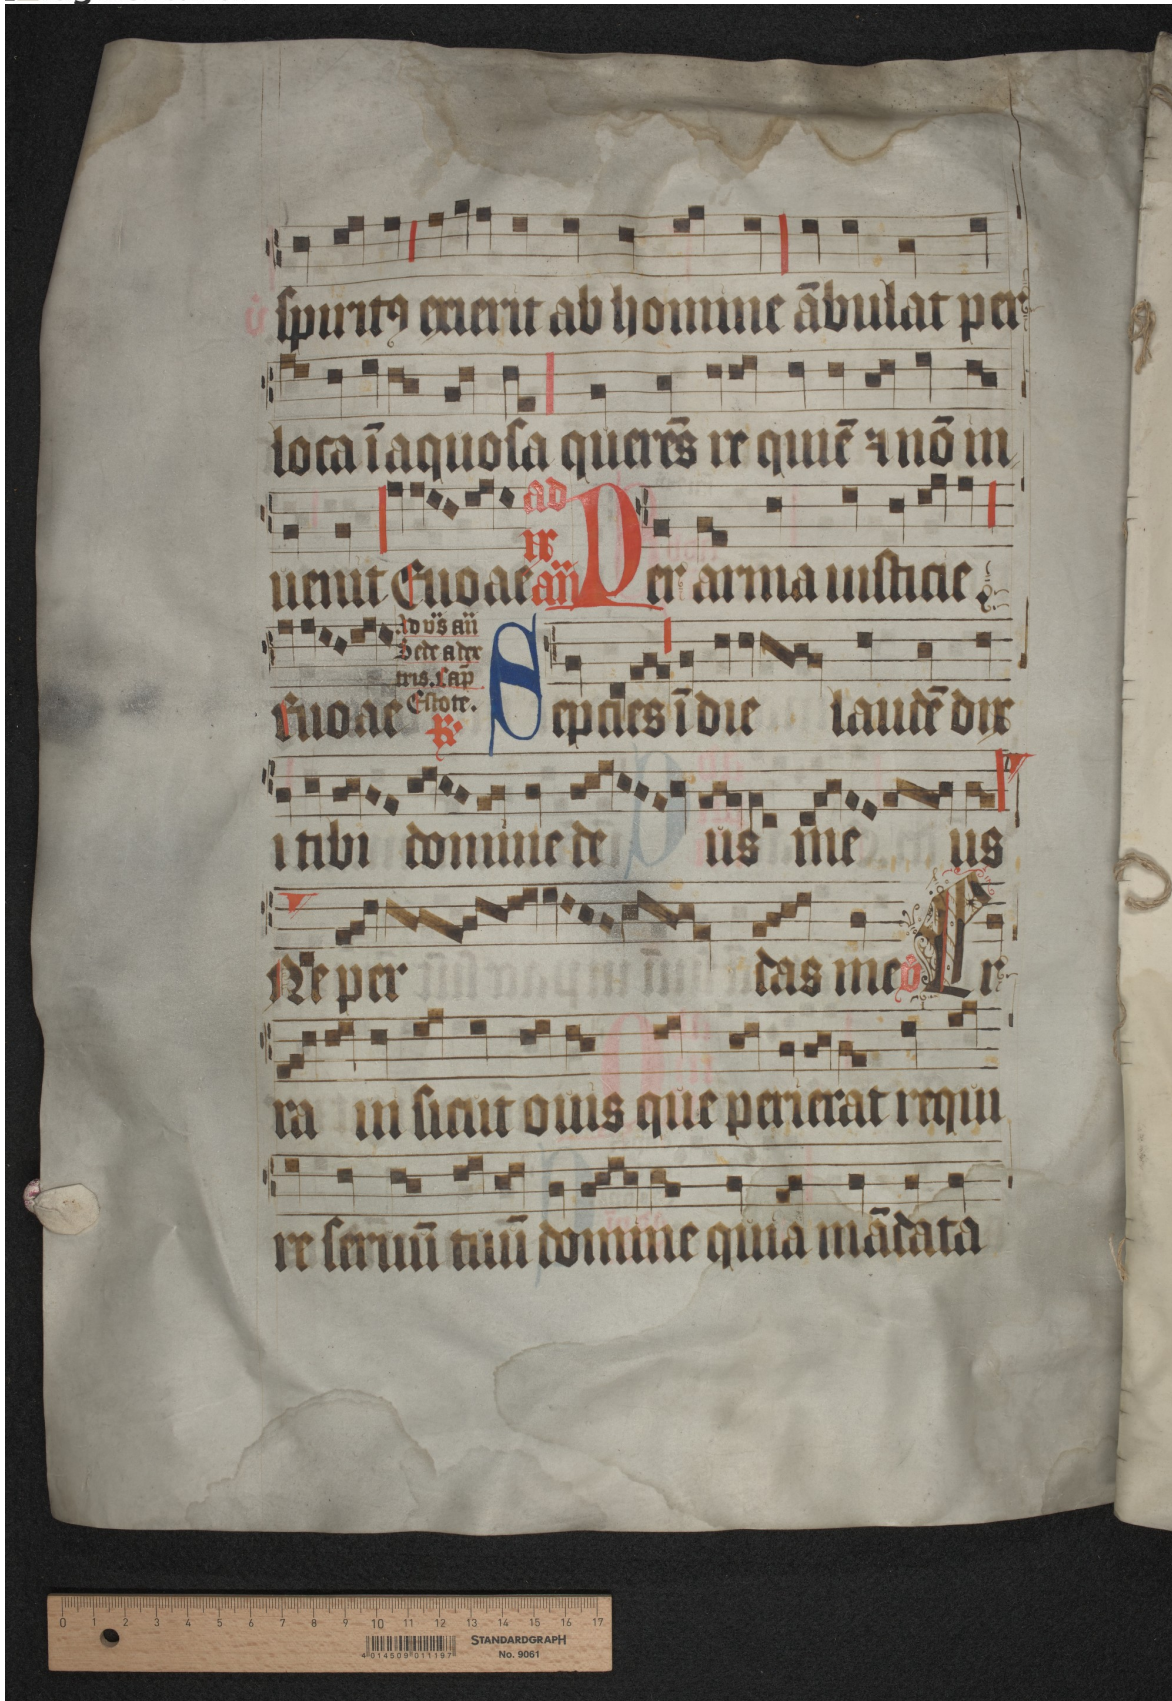 spiritꝯ exierit ab homine ābulat per
loca īaquosa querēs re quiē ⁊ nō in
uenit Euoae ad ix an̄ Per arma iusticie
Euoae Ad vs̄ an̄
Sede a dex
tris. Cap̄
Estote.
R Septies ī die laudē dix
i tibi domine de us me us
V Ne per das me v Er
ra ui sicut ouis que perierat requi
re seruū tuū domine quia mādata
0 1 2 3 4 5 6 7 8 9 10 11 12 13 14 15 16 17
STANDARDGRAPH
No. 9061
4 014509 011197